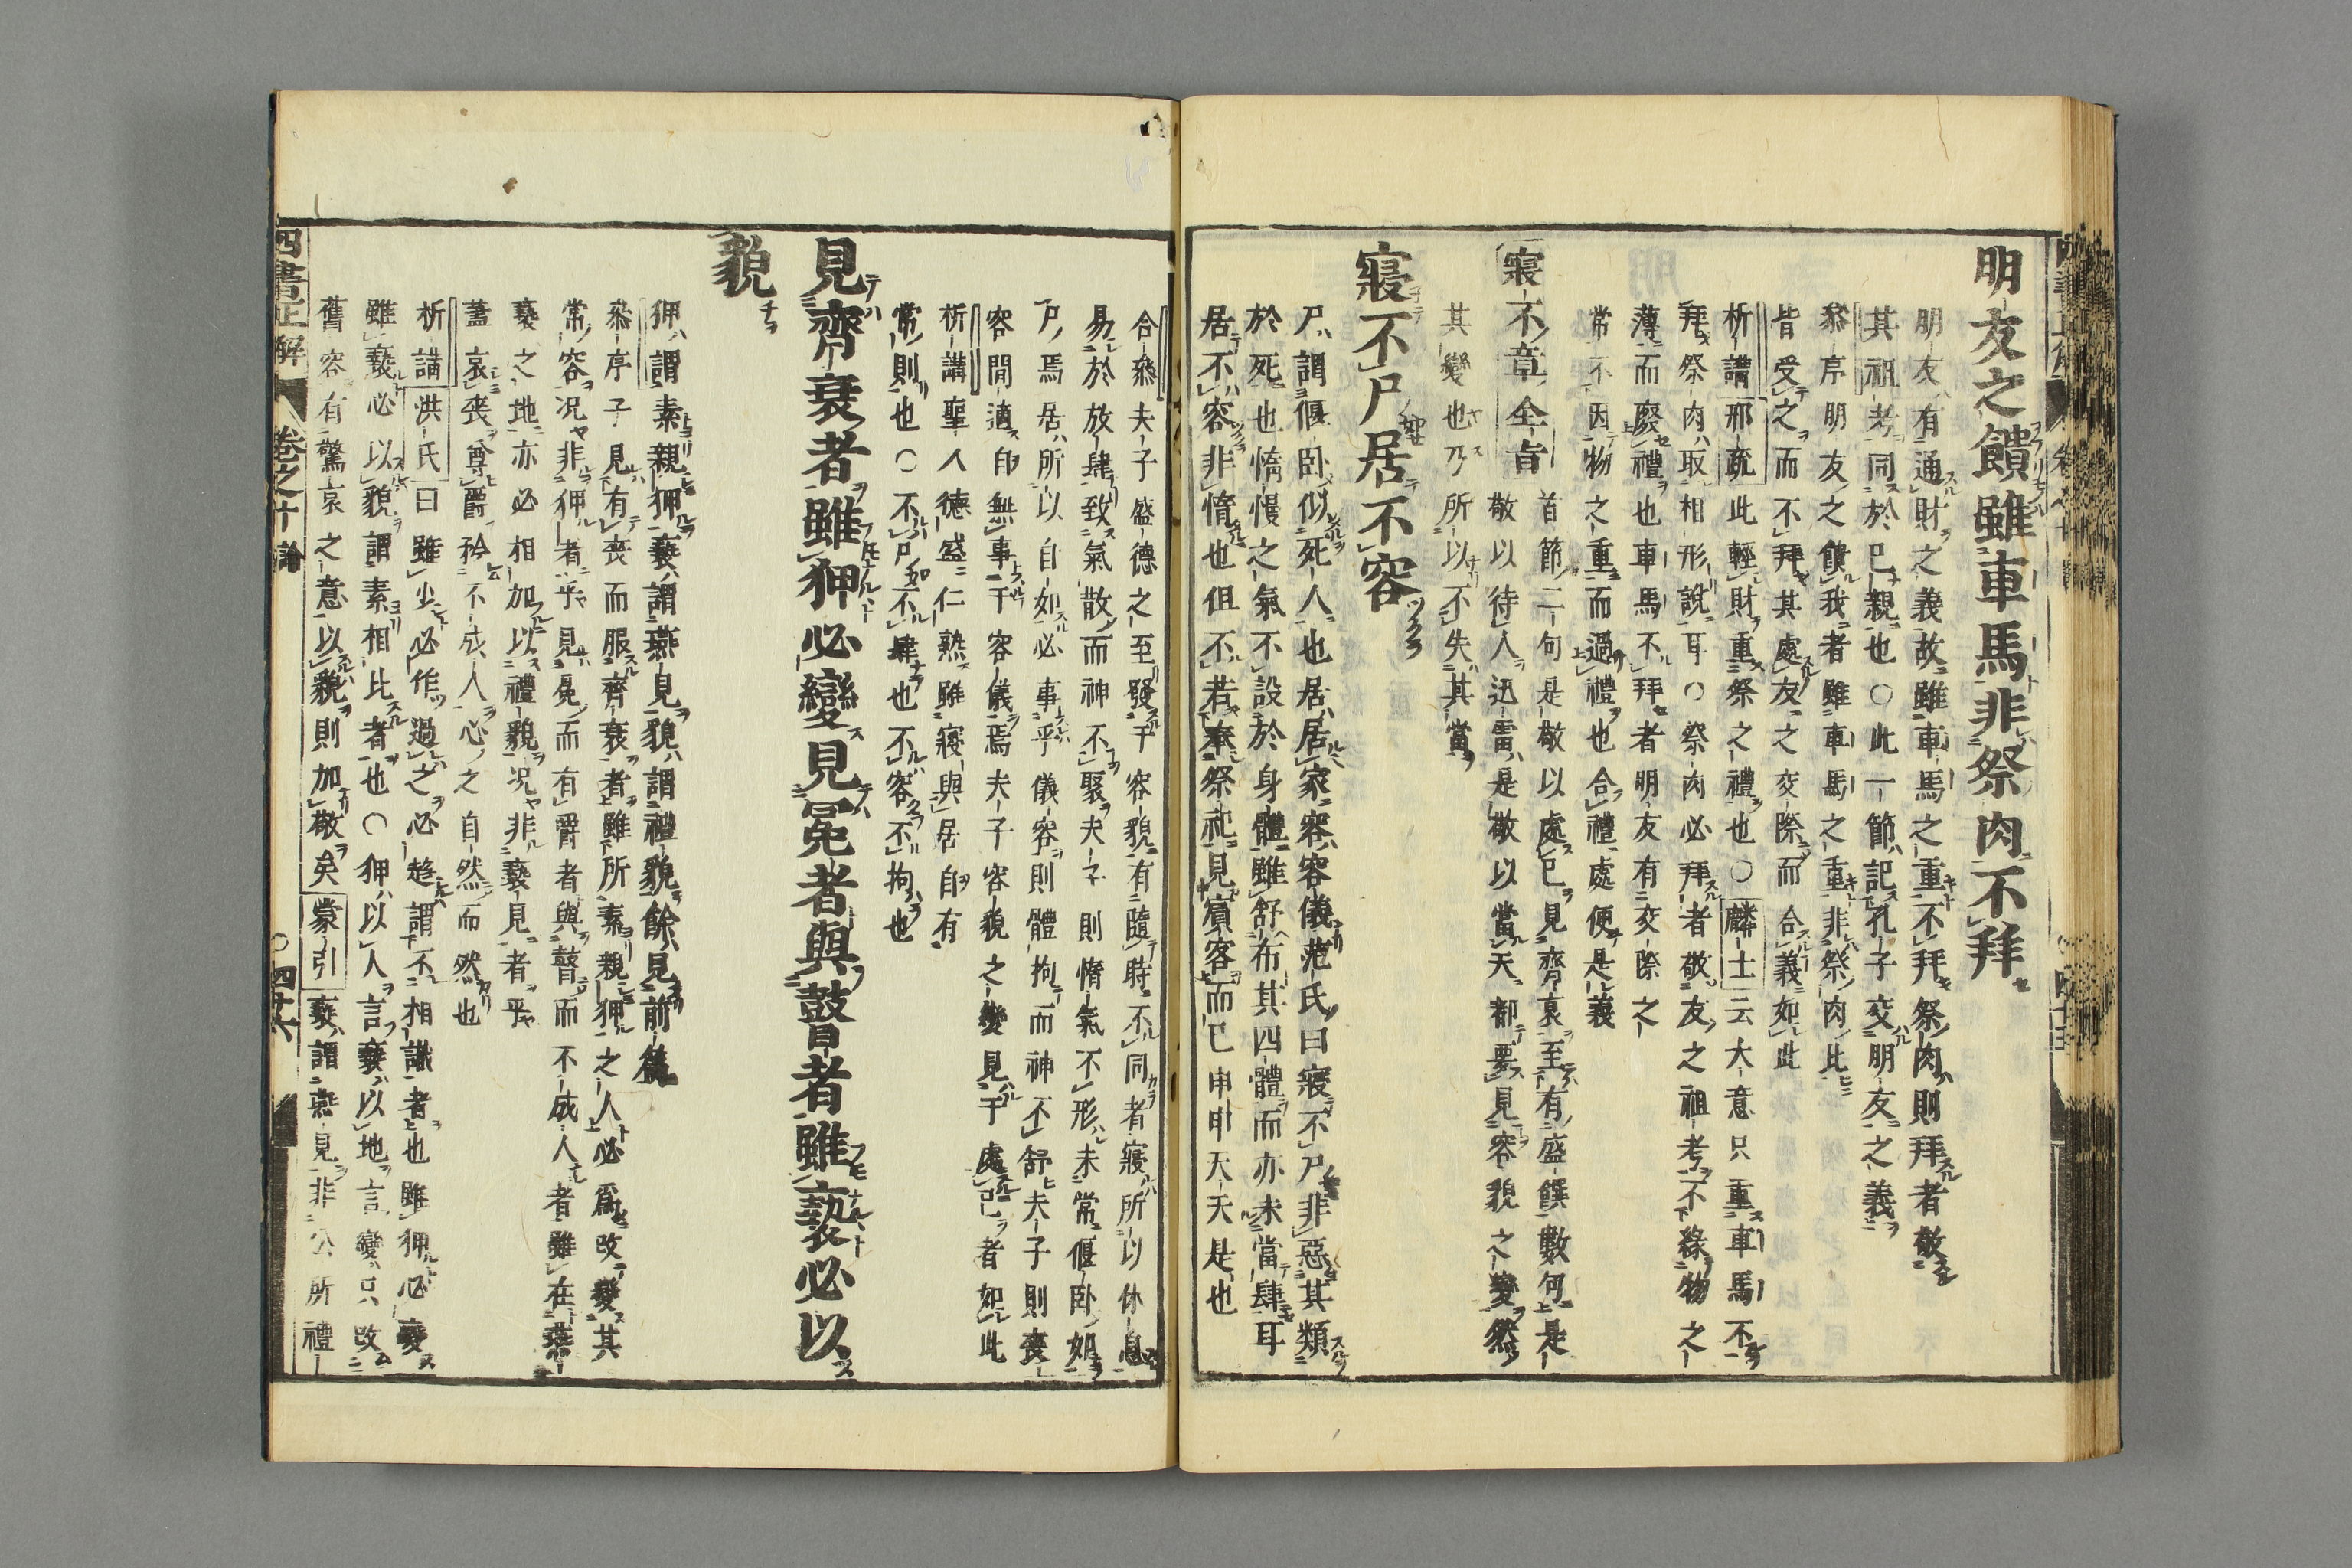 明友之饋雖車馬非祭肉不拜
朋友有通財之義故雖車馬之重不拜祭肉則拜者敬
其祖考同於已親也○此一節記孔子交明友之義
叅序明友之饋我者雖車馬之重非祭肉比
皆受之而不拜其處友之交際而合義如此
析講邢疏此輕財重祭之禮也○麟士云大意只重車馬不
拜祭肉取相形說耳○祭肉必拜者敬友之祖考不緣物之
薄而廢禮也車馬不拜者明友有交際之
常不因物之重而過禮也合禮處便是義
寢不章全旨
首節二句是敬以處已見齊衰至有盛饌數句是
敬以待人迅雷是敬以當天都要見容貌之變然
其變也乃所以不失其當
寢不尸居不容
尸謂偃卧似死人也居居家容容儀范氏曰寢不尸非惡其類
於死也惰慢之氣不設於身體雖舒布其四體而亦未當肆耳
居不容非惰也但不若奉祭祀見賓客而已申申夭夭是也
合叅夫子盛德之至發于容貌有隨時不同者寢所以休息
易於放肆致氣散而神不聚夫子則惰氣不形未常偃卧如
尸焉居所以自如必事乎儀容則體拘而神不舒夫子則喪
容閒適自無事于容儀焉夫子容貌之變見于處已者如此
析講聖人德盛仁熟雖寢與居自有
常則也○不尸如不肆也不容不拘也
見齊衰者雖狎必變見冕者與瞽者雖褻必以
貌
狎謂素親狎褻謂燕見貌謂禮貌餘見前篇
叅序子見有喪而服齊衰者雖所素親狎之人必爲改變其
常容况非狎者乎見冕而有爵者與瞽而不成人者雖在燕
褻之地亦必相加以禮貌况非褻見者乎
蓋哀喪尊爵矜不成人心之自然而然也
析講洪氏曰雖少必作過之必趨謂不相識者也雖狎必變
雖褻必以貌謂素相比者也○狎以人言褻以地言變只改
舊容有驚哀之意以貌則加敬矣蒙引褻謂燕見非公所禮
四書正解
卷之十論
○四十六